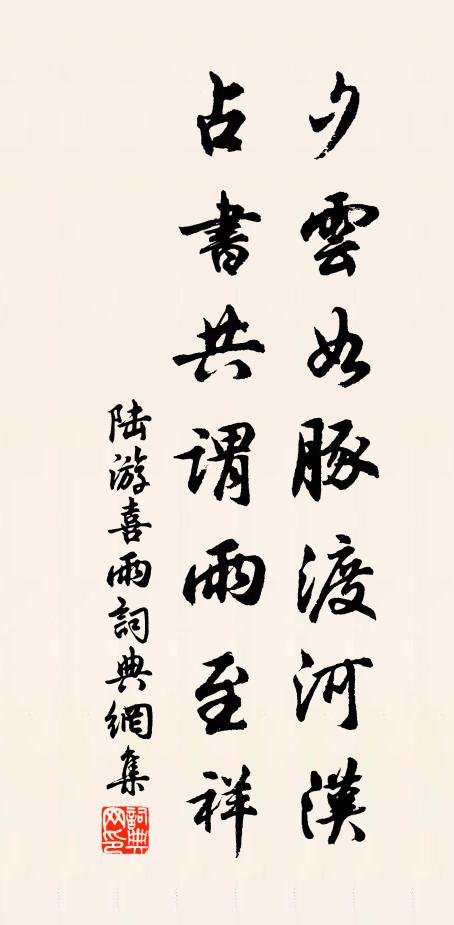 夕雲如豚渡河漢
占書共謂雨至祥
陸游喜雨詞典網集
詞典網印